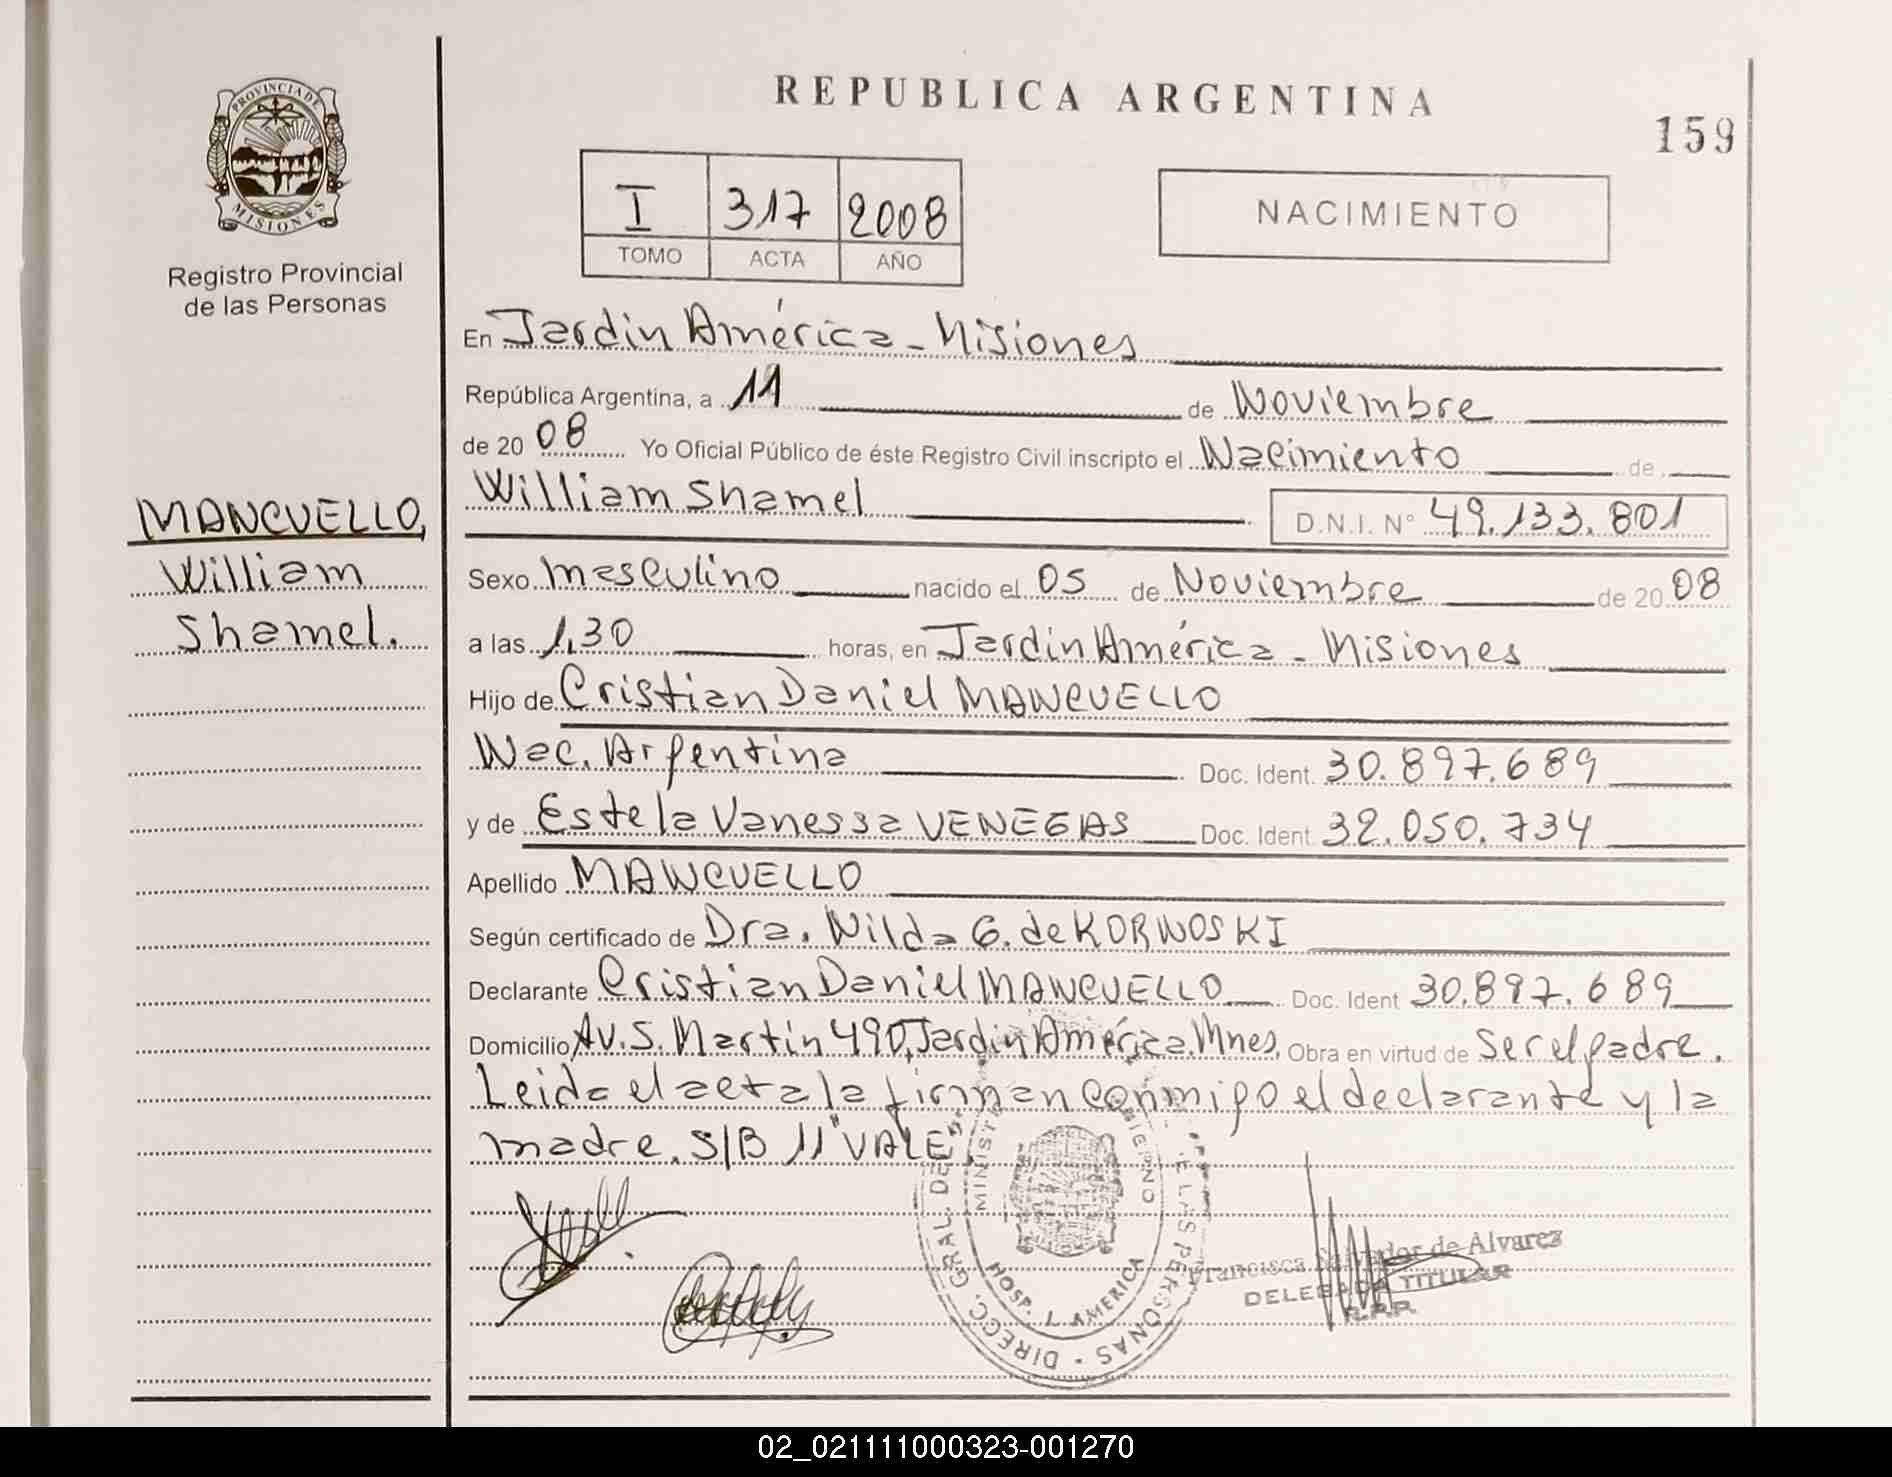 PROVINCIA DE
MISIONES
Registro Provincial
de las Personas
MANCUELLO,
William
Shamel.
REPUBLICA ARGENTINA
159
I 317 2008
TOMO ACTA AÑO
NACIMIENTO
En Jardín América - Misiones
República Argentina, a 11 de Noviembre
de 2008 Yo Oficial Público de éste Registro Civil inscripto el Nacimiento de
William Shamel D.N.I. N° 49.133.801
Sexo masculino nacido el 05 de Noviembre de 2008
a las 1,30 horas, en Jardín América - Misiones
Hijo de Cristian Daniel MANCUELLO
Nac. Argentina Doc. Ident. 30.897.689
y de Estela Vanessa VENEGAS Doc. Ident. 32.050.734
Apellido MANCUELLO
Según certificado de Dra. Nilda G. de KORNOSKI
Declarante Cristian Daniel MANCUELLO Doc. Ident 30.897.689
Domicilio Av. S. Martín 490, Jardín América. Mnes, Obra en virtud de ser el padre.
Leida el acta la firman conmigo el declarante y la
madre. S/B 11 "VALE".
DIRECC. GRAL. DE LAS PERSONAS
HOSP. J. AMERICA
Francisca Salvador de Alvarez
DELEGADA TITULAR
R.P.P.
02_021111000323-001270